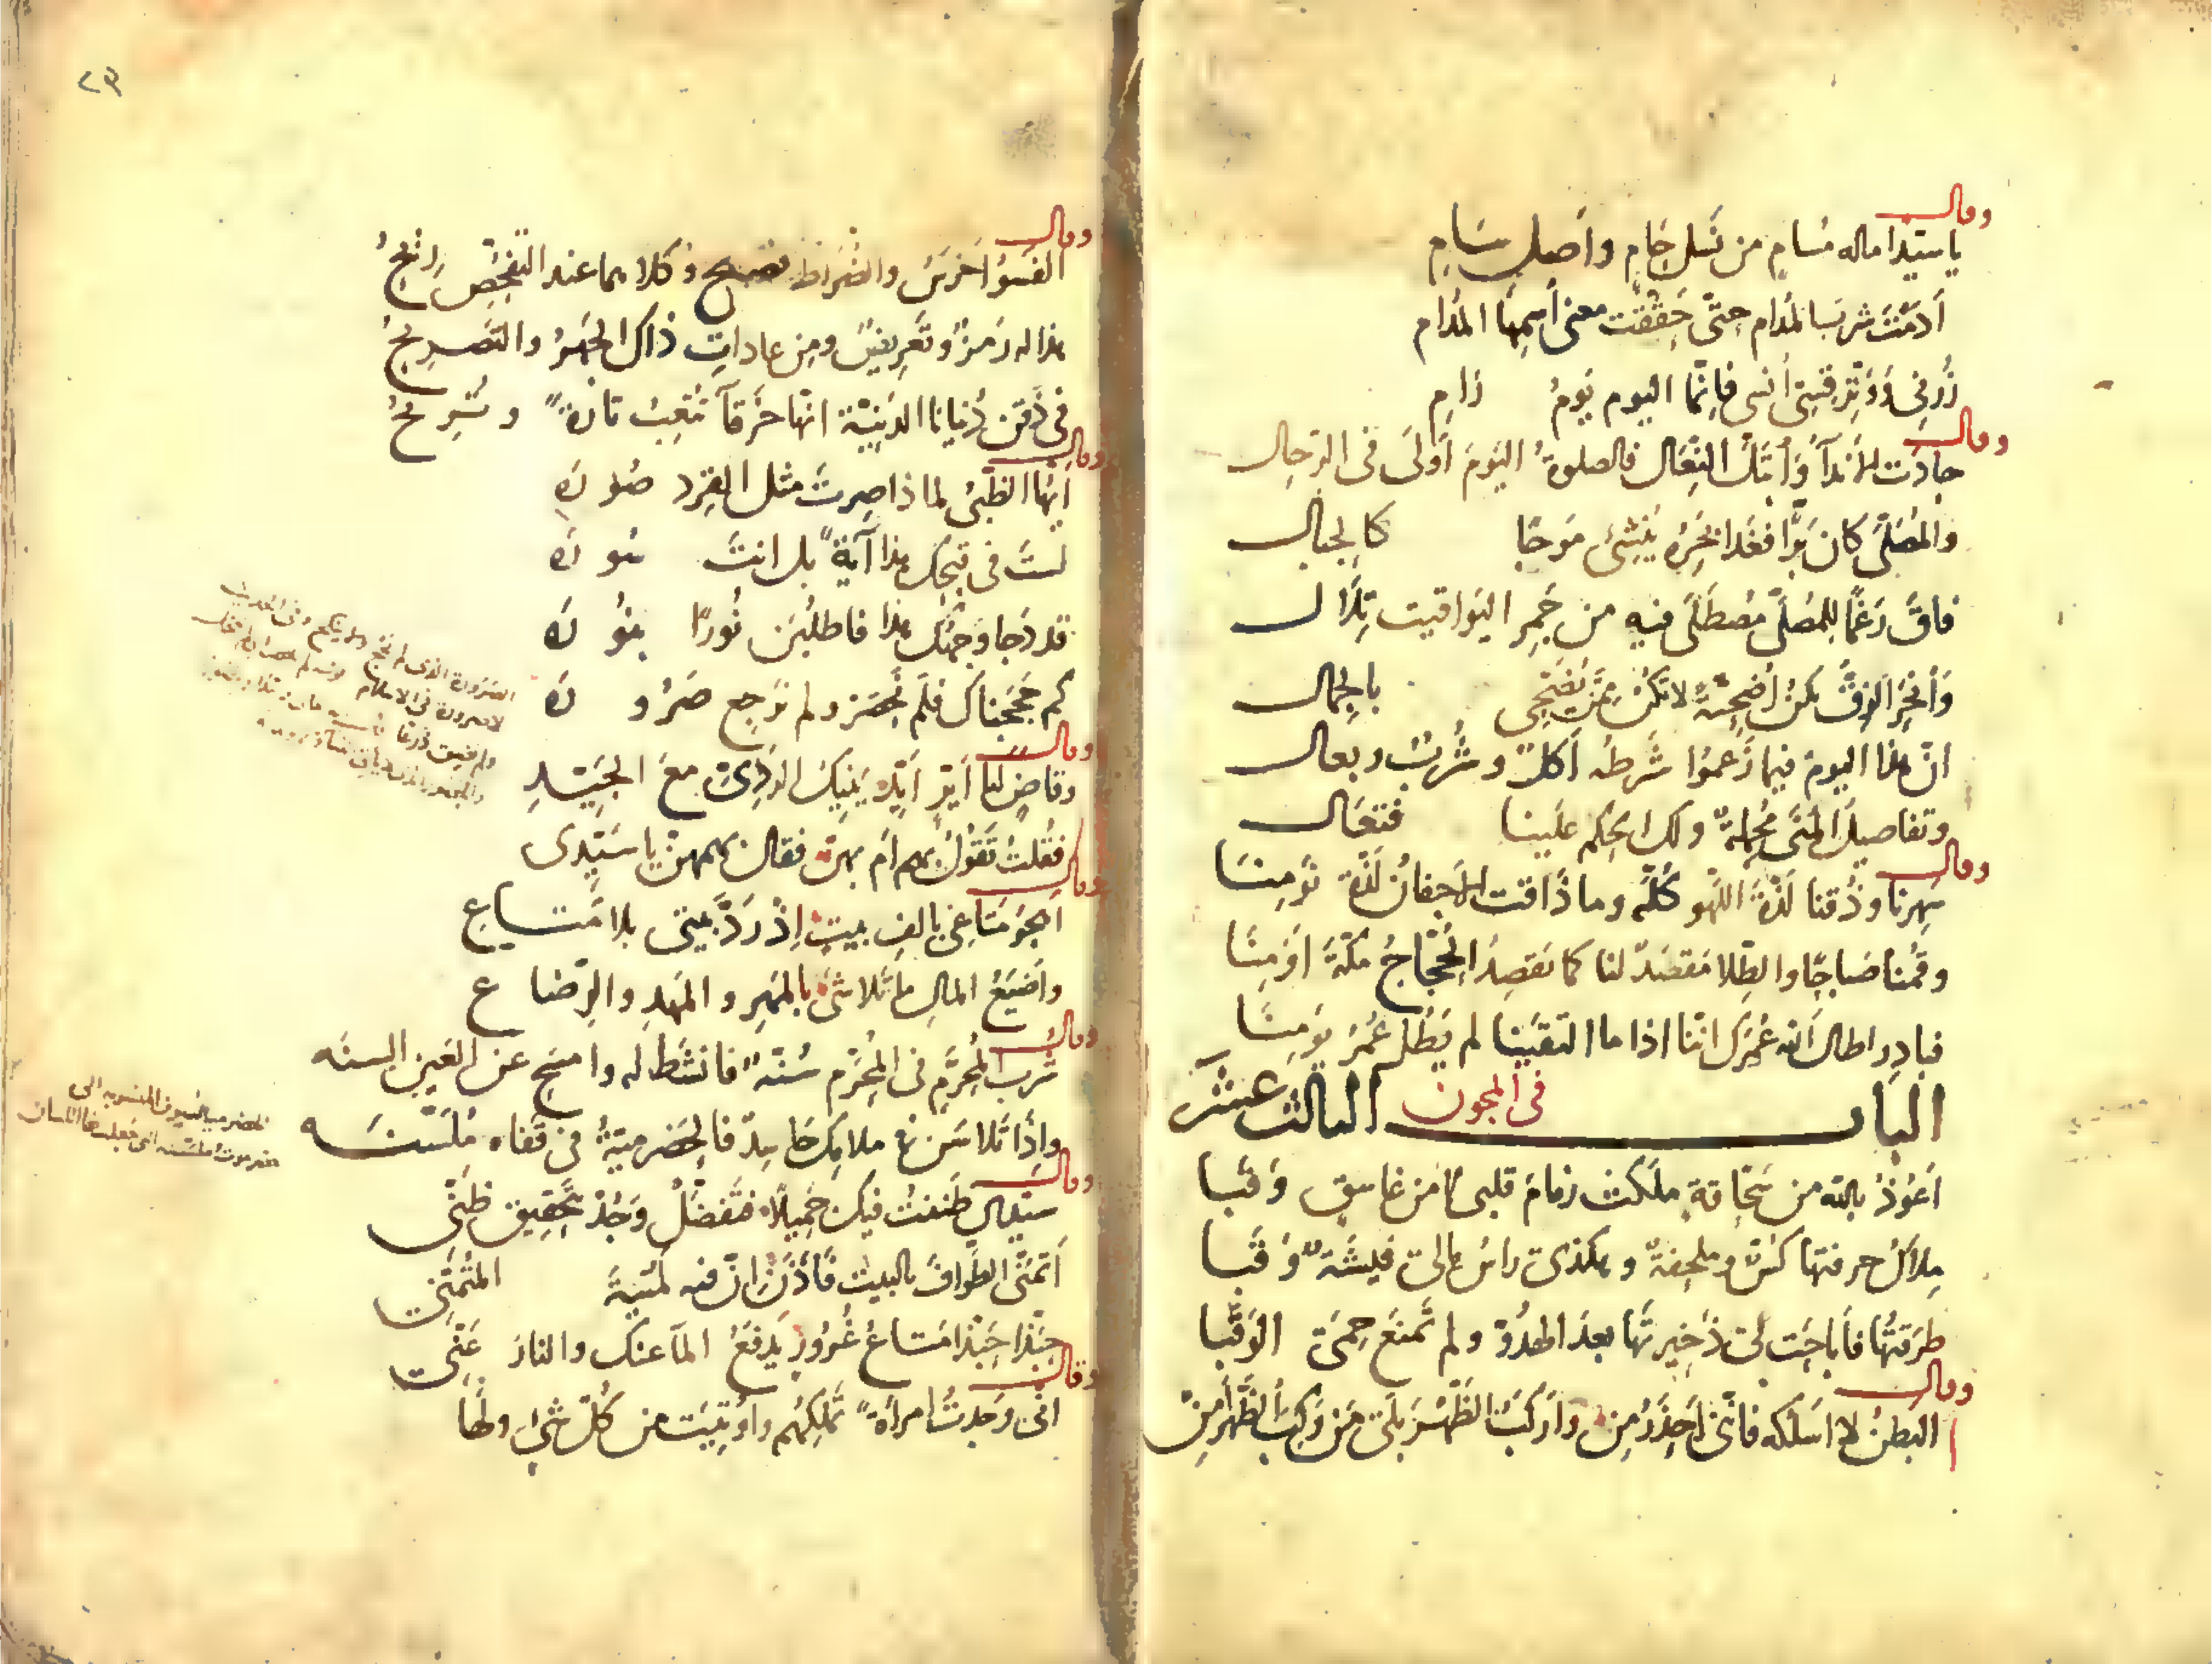 وقال
يا سيّدا ماله مسام من نسل حام وأصل سام
أدمت شرب المدام حتّى حققت معنى أسمها المدام
زرني وزد
فإنّما اليوم يوم رام
وقال
جادت الأنداء وأبتلّ النّعال فالصلوة اليوم أولى في الرّحال
والمصلّى كان برّا فغدا بحره ينشئ موجًا كالجبال
فاق رغمًا للمصلّى مصطلى فيه من جمر اليواقيت تلال
وأنحر الزقّ يكن أضحية لا تكن ممّن يضحّي بالجمال
انّ هذا اليوم فيما زعموا شرطه أكل وشرب وبعال
وتفاصيل المنى مجملة ولك الحكم علينا فتعال
وقال
سهرنا وذقنا لذّة اللّهو كلّه وما ذاقت الأجفان لذّة نومنا
وقمنا صباحًا والطّلا مقصد لنا كما تقصد الحجّاج مكّة أو منا
فبادر اطال الله عمرك انّنا اذا ما التقينا لم يطل عمر يومنا
الباب الثالث عشر في المجون
اعوذ بالله من سحّاقة ملكت زمام قلبي كما من غاسق وقبا
ملاك حرفتها كسّ وملحفة وهكذى راس مالي فيشة وقبا
طرقتها فأباحت لي ذخيرتها بعد الهدوّ ولم تمنع حمى الوقبا
وقال
البطن لا اسلكه فانّني احذر من واركب الظّهر بلى من ركب الظّهر أمن
٢٣
وقال
الفسو اخرس والضّراط فصيح وكلاهما عند التفحّص ريح
هذا له رمز وتعريض ومن عادات ذاك الجهر والتّصريح
في ذقن دنيانا الدنيّة انّها حرقًا تتعب تارة وتريح
وقال
أيّها الظّبي لماذا صرت مثل القرد صورة
لست في قبحك هذا آية بل انت سورة
قد دجا وجهك هذا فاطلبن نورًا بنورة
كم حججناك فلم تحصر ولم نرجع صرورة
وقال
وقاض لنا اير ايّده ينيك الردئ مع الجيّد
فقلت تقول بهم ام بهنّ فقال بهم بهنّ يا سيّدي
وقال
اهجو متاعي بالف بيت اذ ردّ بيتي بلا متاع
واضيع المال ما تلاشى بالمهر والمهد والرّضاع
وقال
شرب المحرّم في المحرّم سنّة فانشط له وامسح عن العين السنه
واذا تلاسن
ملامك حاسد فالحضرميّة في قفاه ملسّنه
وقال
سيّدي ظننت فيك جميلا فتفضّل وجد بتحقيق ظنّي
اتمنّى الطّواف بالبيت فأذن انّ فيه لمنية المتمنّي
حبّذا حبّذا متاع غرور يدفع الما عنك والنار عنّي
وقال
انّي وجدت امرأة تملكهم واوتيت من كلّ شئ ولها
الصرورة الذي لم يحج
وفي الحديث
لا صرورة في الاسلام
الحضرمية النسوبة الى
حضرموت